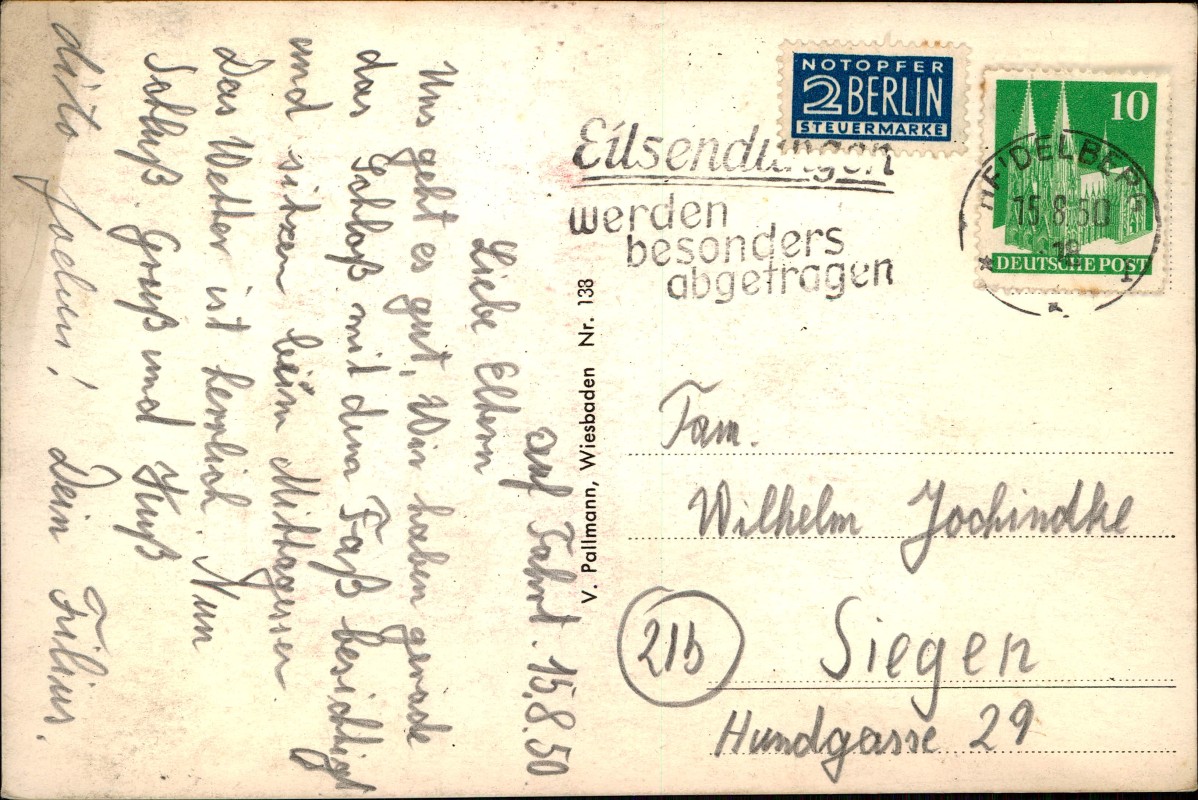 auf Fahrt. 15.8.50
Liebe Eltern
Uns geht es gut, Wir haben gerade
das Schloß mit dem Faß besichtigt
und sitzen beim Mittagessen
Das Wetter ist herrlich. Nun
Schluß. Gruß und Kuß
dito Jochen! Dein Filius.
V. Pallmann, Wiesbaden Nr. 138
NOTOPFER
2 BERLIN
STEUERMARKE
10
DEUTSCHE POST
Eilsendungen
werden
besonders
abgetragen
HEIDELBERG
15.8.50
18
1
Fam.
Wilhelm Jochindke
21b
Siegen
Hundgasse 29